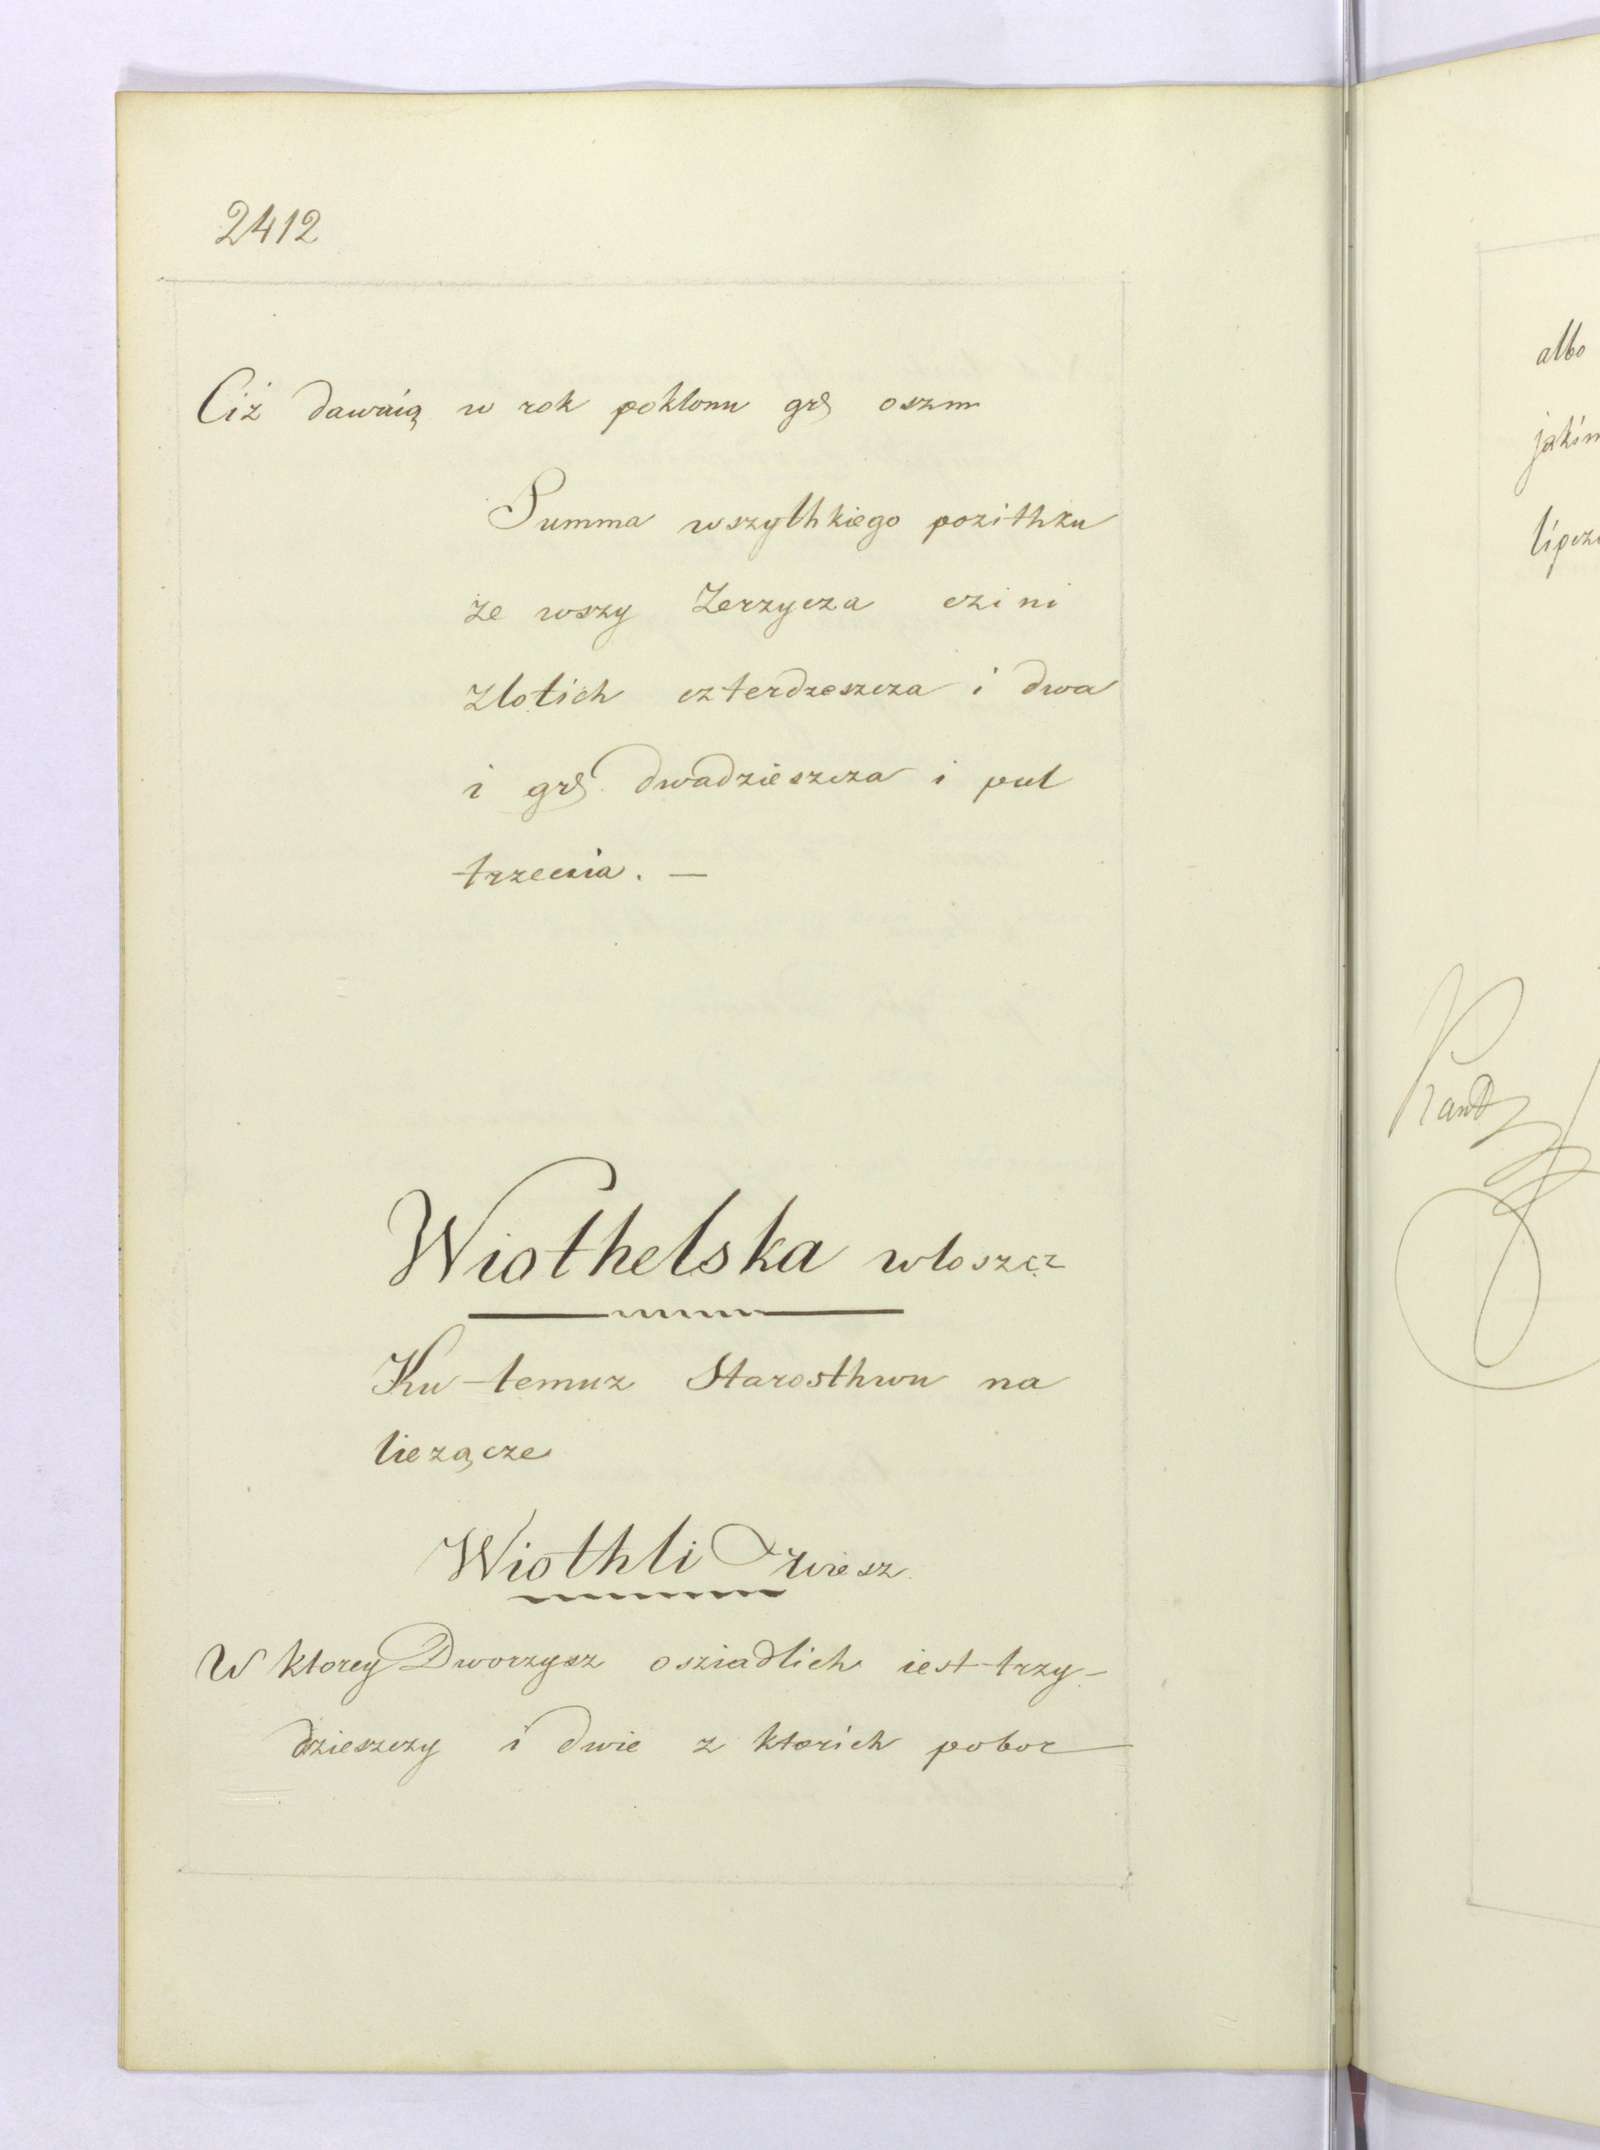 2412
Ciż dawaią w rok poklonu grs oszm
Summa wszythkiego pozithku
ze wszy Zerzycza czini
Zlotich czterdzeszcza i dwa
i grs dwadzieszcza i pul
trzecia. —
Wiothelska wloszcz
Ku temuz Starosthwu na
liezącze
Wiothli wiesz
W ktorey Dworzysz osziadlich iest trzy-
dzieszczy i dwie z ktorich pobor
albo